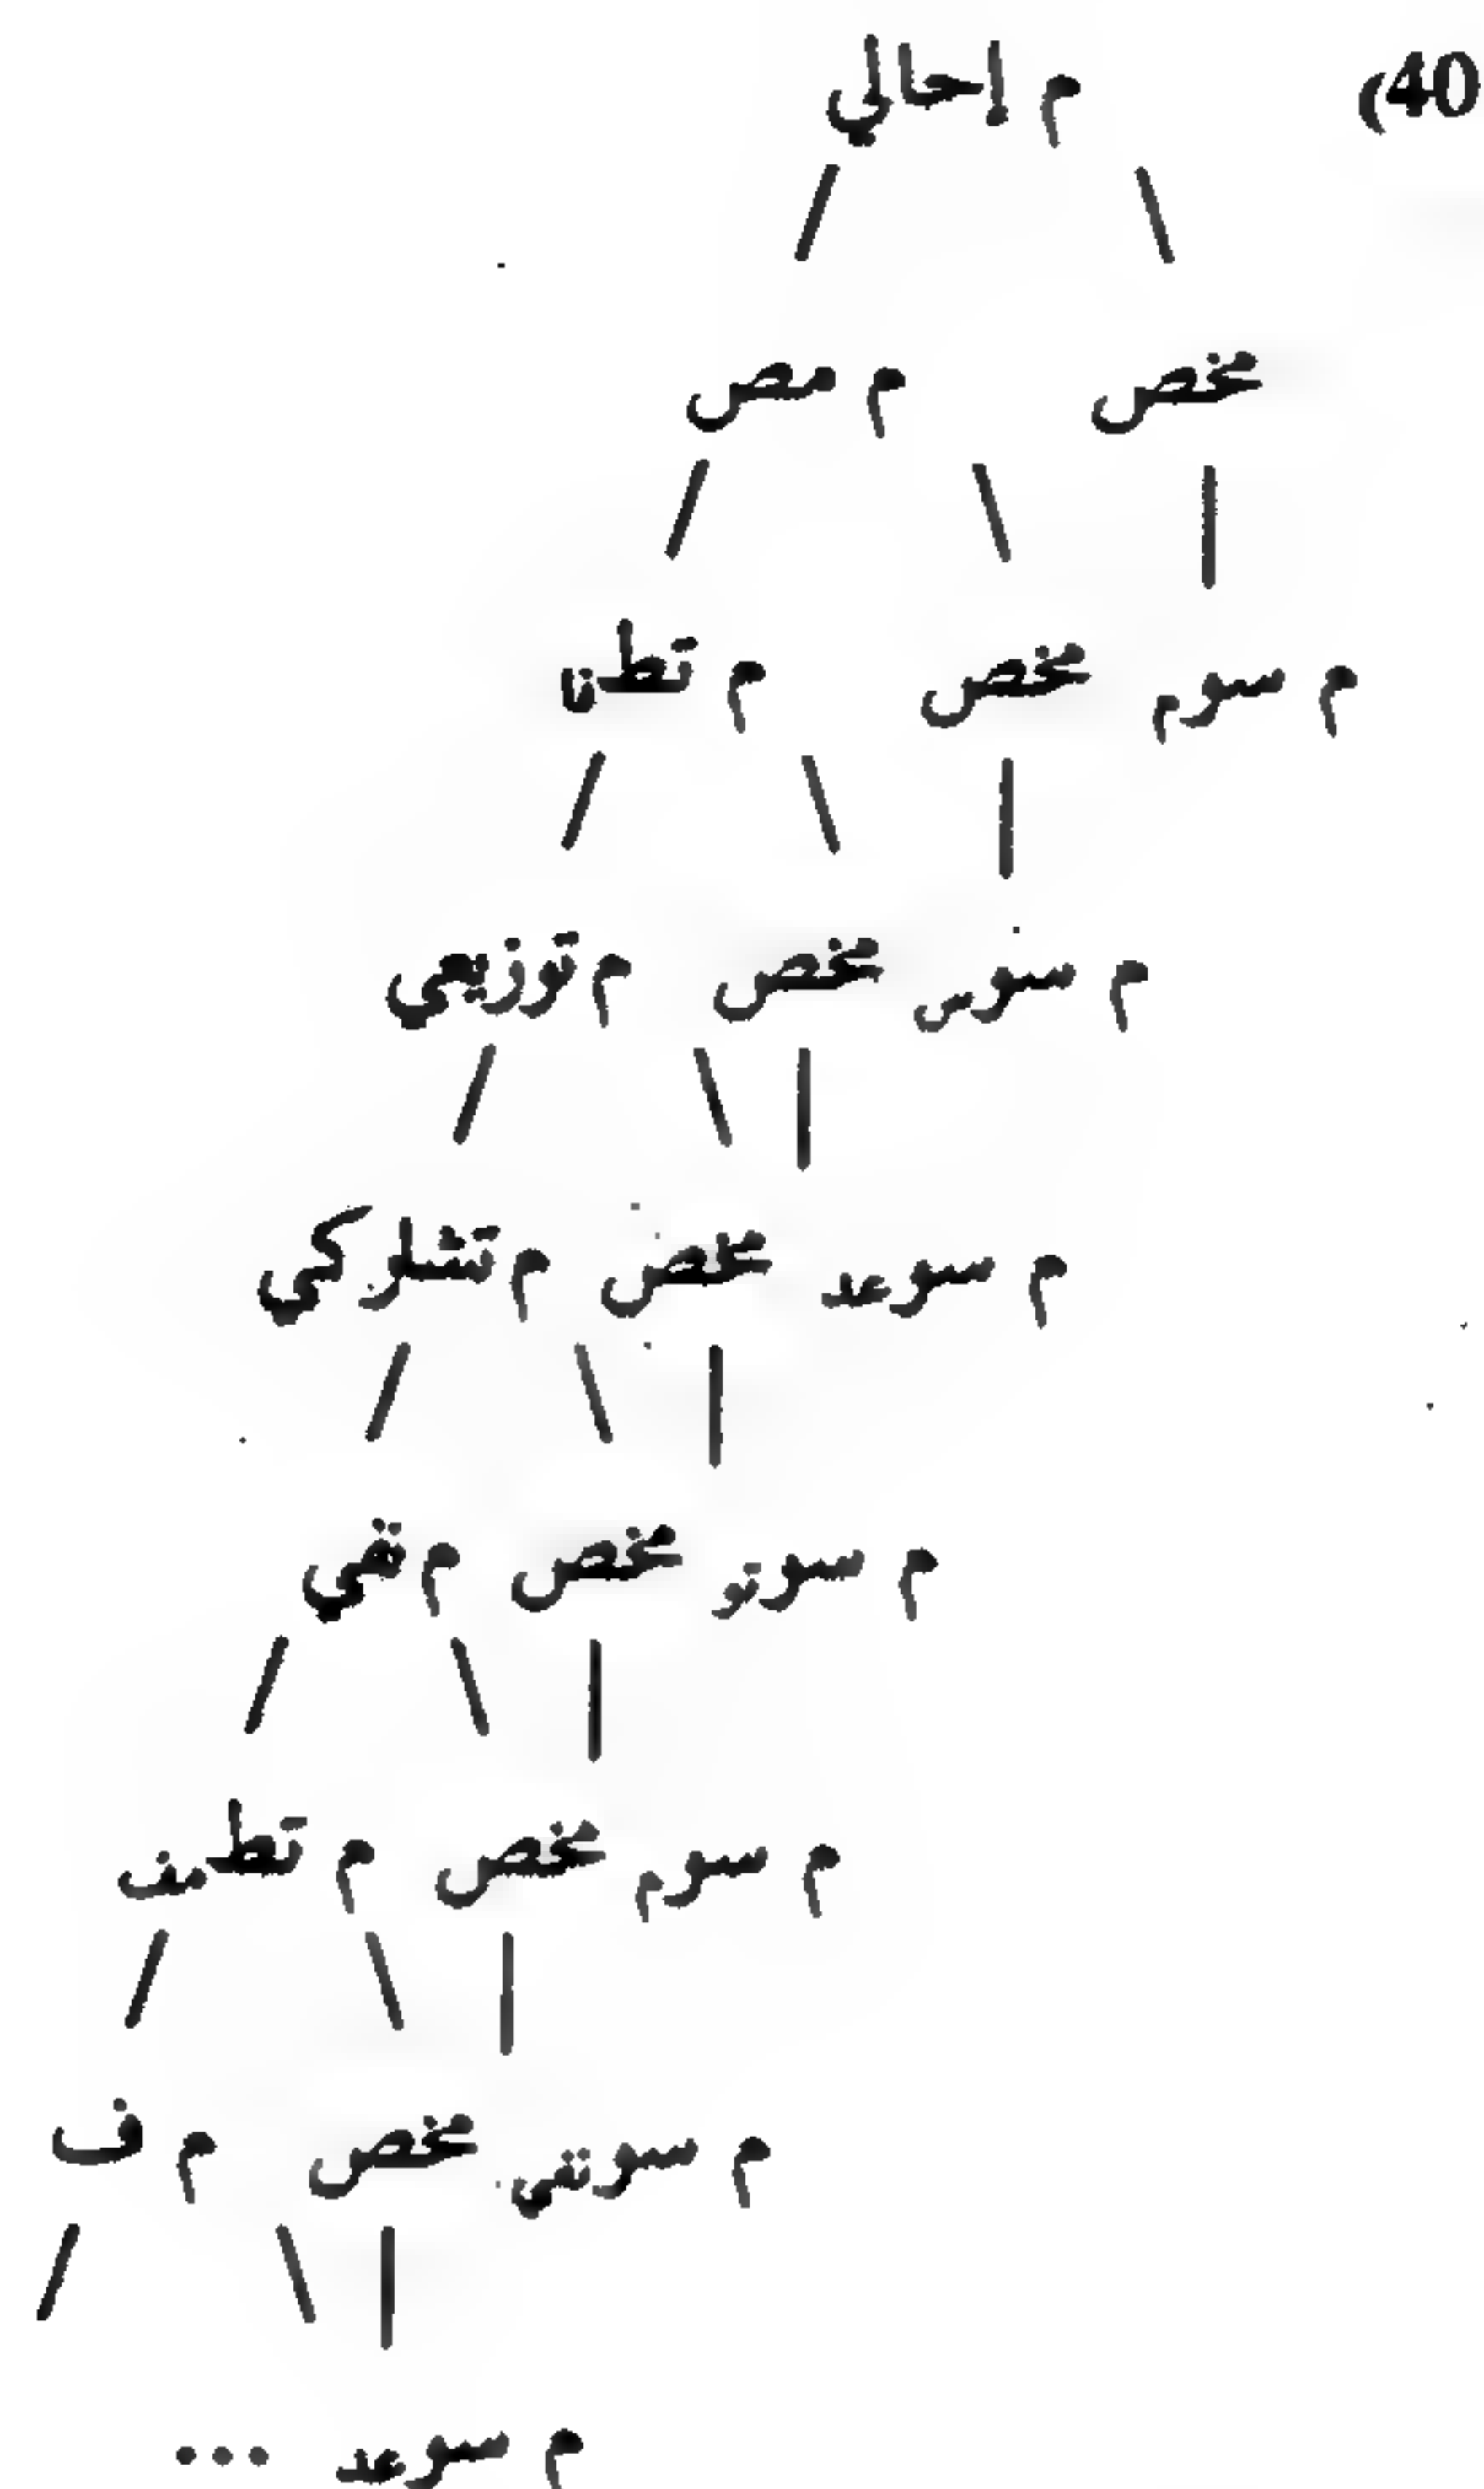 (40 م إحالي
مخص م مص
م سوم مخص م تطـنا
م سوص مخص م توزيعي
م سوعد مخص م تشاركي
م سوتو مخص م تقي
م سوم مخص م تطـمف
م سوتقي مخص م ف
م سوعد ...